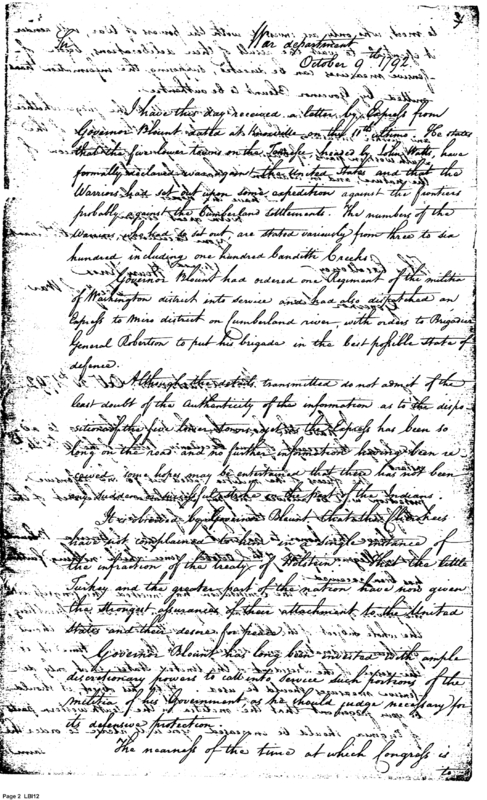 3
Sir,
War department
October 9th 1792
I have this day received a letter by Express from
Governor Blount dated at Knoxville on the 11th Ultimo. He states
that the five lower towns on the Tenessee headed by John Watts, have
formally declared war against the United States and that the
Warriors had set out upon some expedition against the frontiers
probably against the Cumberland settlements. The numbers of the
Warriors who had so set out, are stated variously from three to six
hundred including one hundred Banditti Creeks
Governor Blount had ordered one Regiment of the militia
of Washington district into service and had also dispatched an
Express to Miro district on Cumberland river, with orders to Brigadier
General Robertson to put his brigade in the best possible state of
defence.
Although the details transmitted do not admit of the
least doubt of the authenticity of the information as to the dispo-
sition of the five lower towns, yet as the Express has been so
long on the road and no further information having been re-
ceived, some hope may be entertained that there has not been
any on the part of the Indians.
It is by Governor Blount that the Cherokees
have not complained to him in a single instance of
the infraction of the treaty of Holstein. That the little
Turkey and the greater part of the nation have now given
the strongest assurances of their attachment to the United
States and their desire for peace
Governor Blount has long been invested with ample
discretionary powers to call into service such portions of the
militia of his Government, as he should judge necessary for
its defensive protection.
The nearness of the time at which Congress is
to
Page 2 LBI12